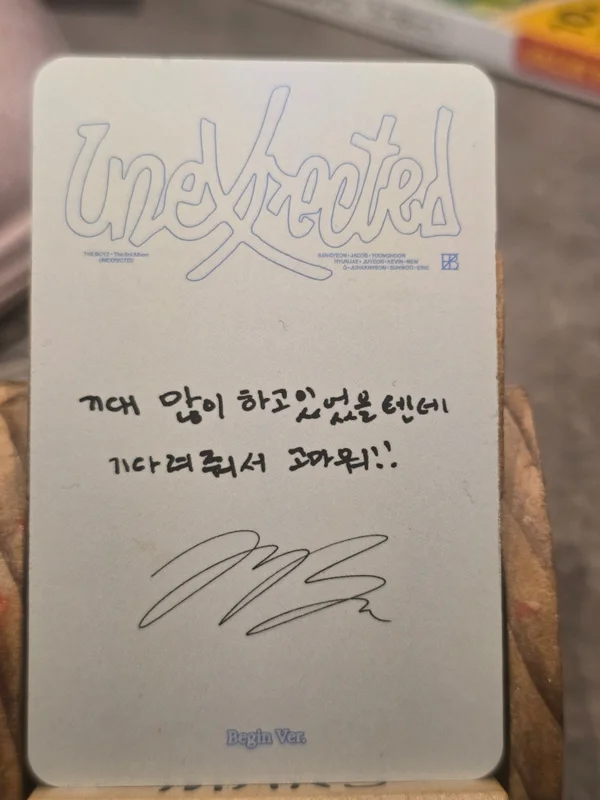 Unexpected
THE BOYZ - The 3rd Album
UNEXPECTED
SANGYEON · JACOB · YOUNGHOON
HYUNJAE · JUYEON · KEVIN · NEW
Q · JUHAKNYEON · SUNWOO · ERIC
기대 많이 하고있었을텐데
기다려줘서 고마워!!
Begin Ver.